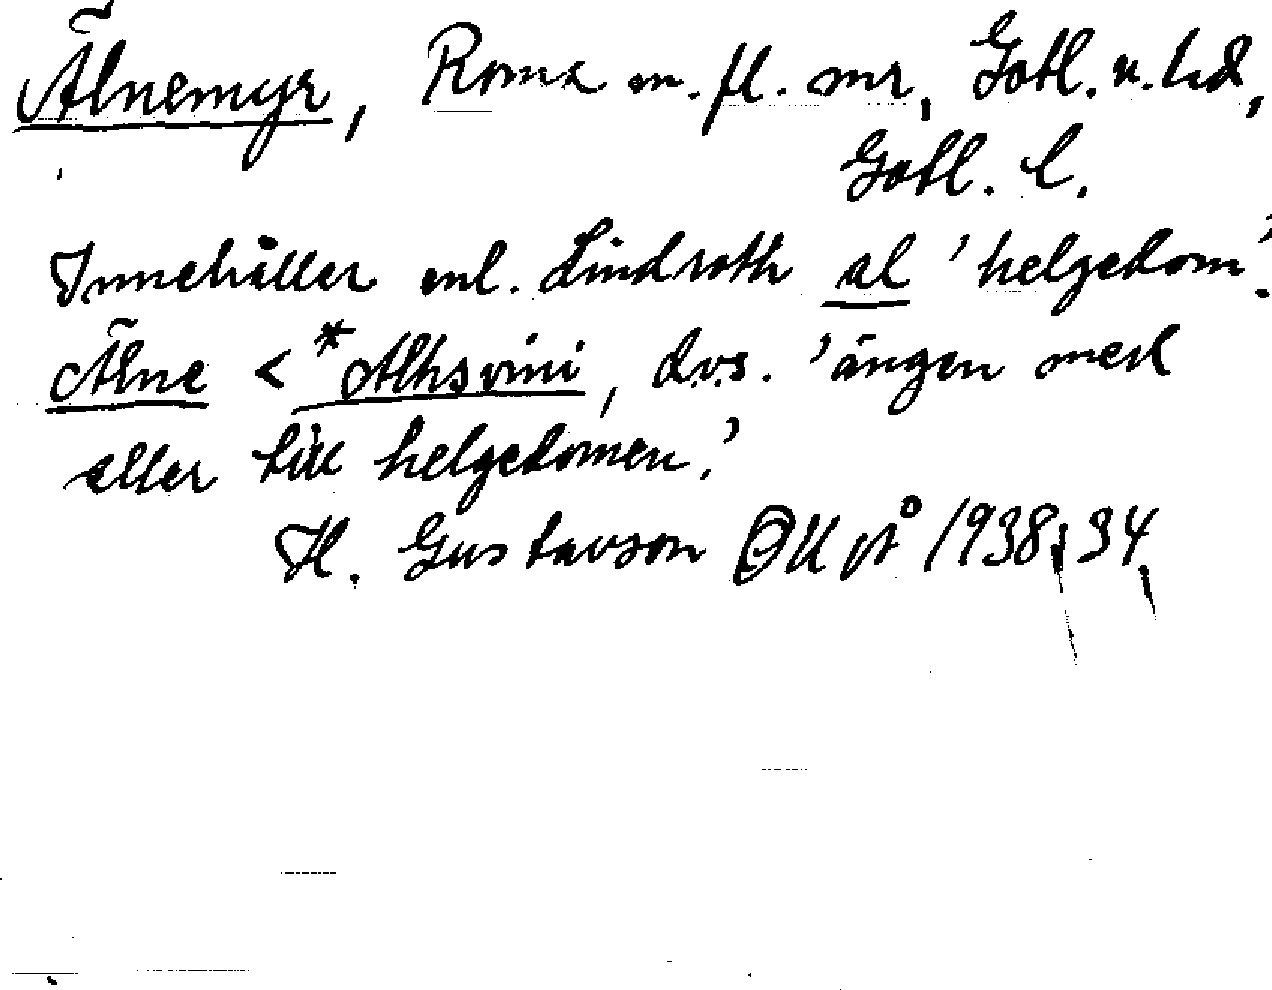 Ālnemyr, Roma m. fl. snr, Gotl. n. hd,
Gotl. l.
Innehåller enl. Lindroth al 'helgedom'.
Ālne < *Alhsvini, dvs. 'ängen med
eller till helgedomen.'
H. Gustavson på 1938, 34.